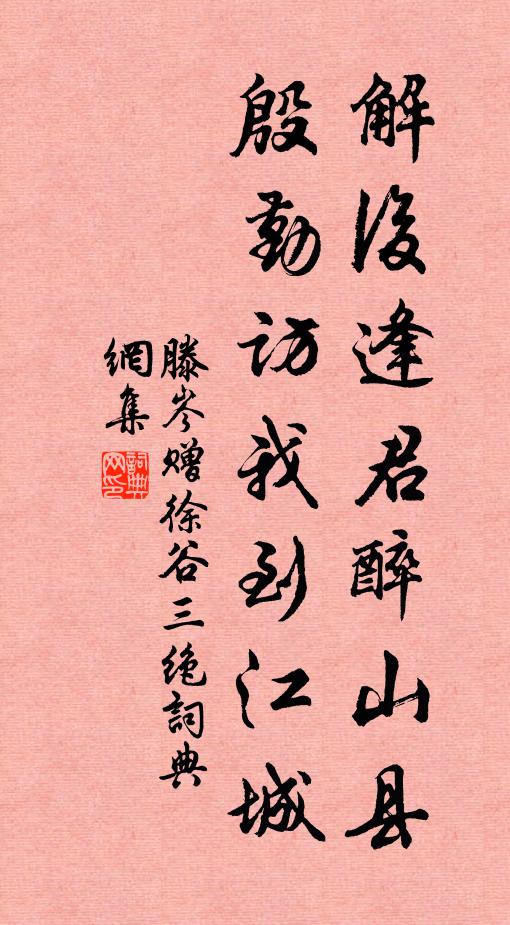 解後逢君醉山县
殷勤訪我到江城
滕岑赠徐谷三绝詞典
網集
詞典
网印